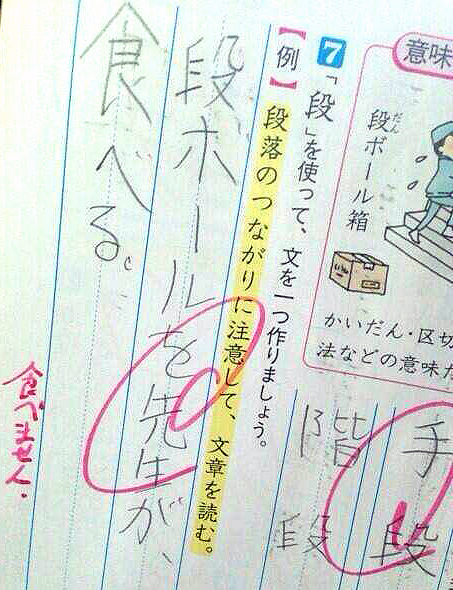 意味
段ボール箱
だん
かいだん・区切
法などの意味
手段
階段
7 「段」を使って、文を一つ作りましょう。
【例】段落のつながりに注意して、文章を読む。
段ボールを先生が、
食べる。
食べません。